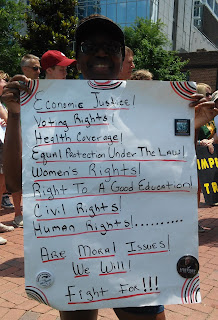 Economic Justice!
Voting Rights!
Health Coverage!
Equal Protection Under The Law!
Women's Rights!
Right To A Good Education!
Civil Rights!
Human Rights!..........
Are Moral Issues!
We Will!
Fight For!!!